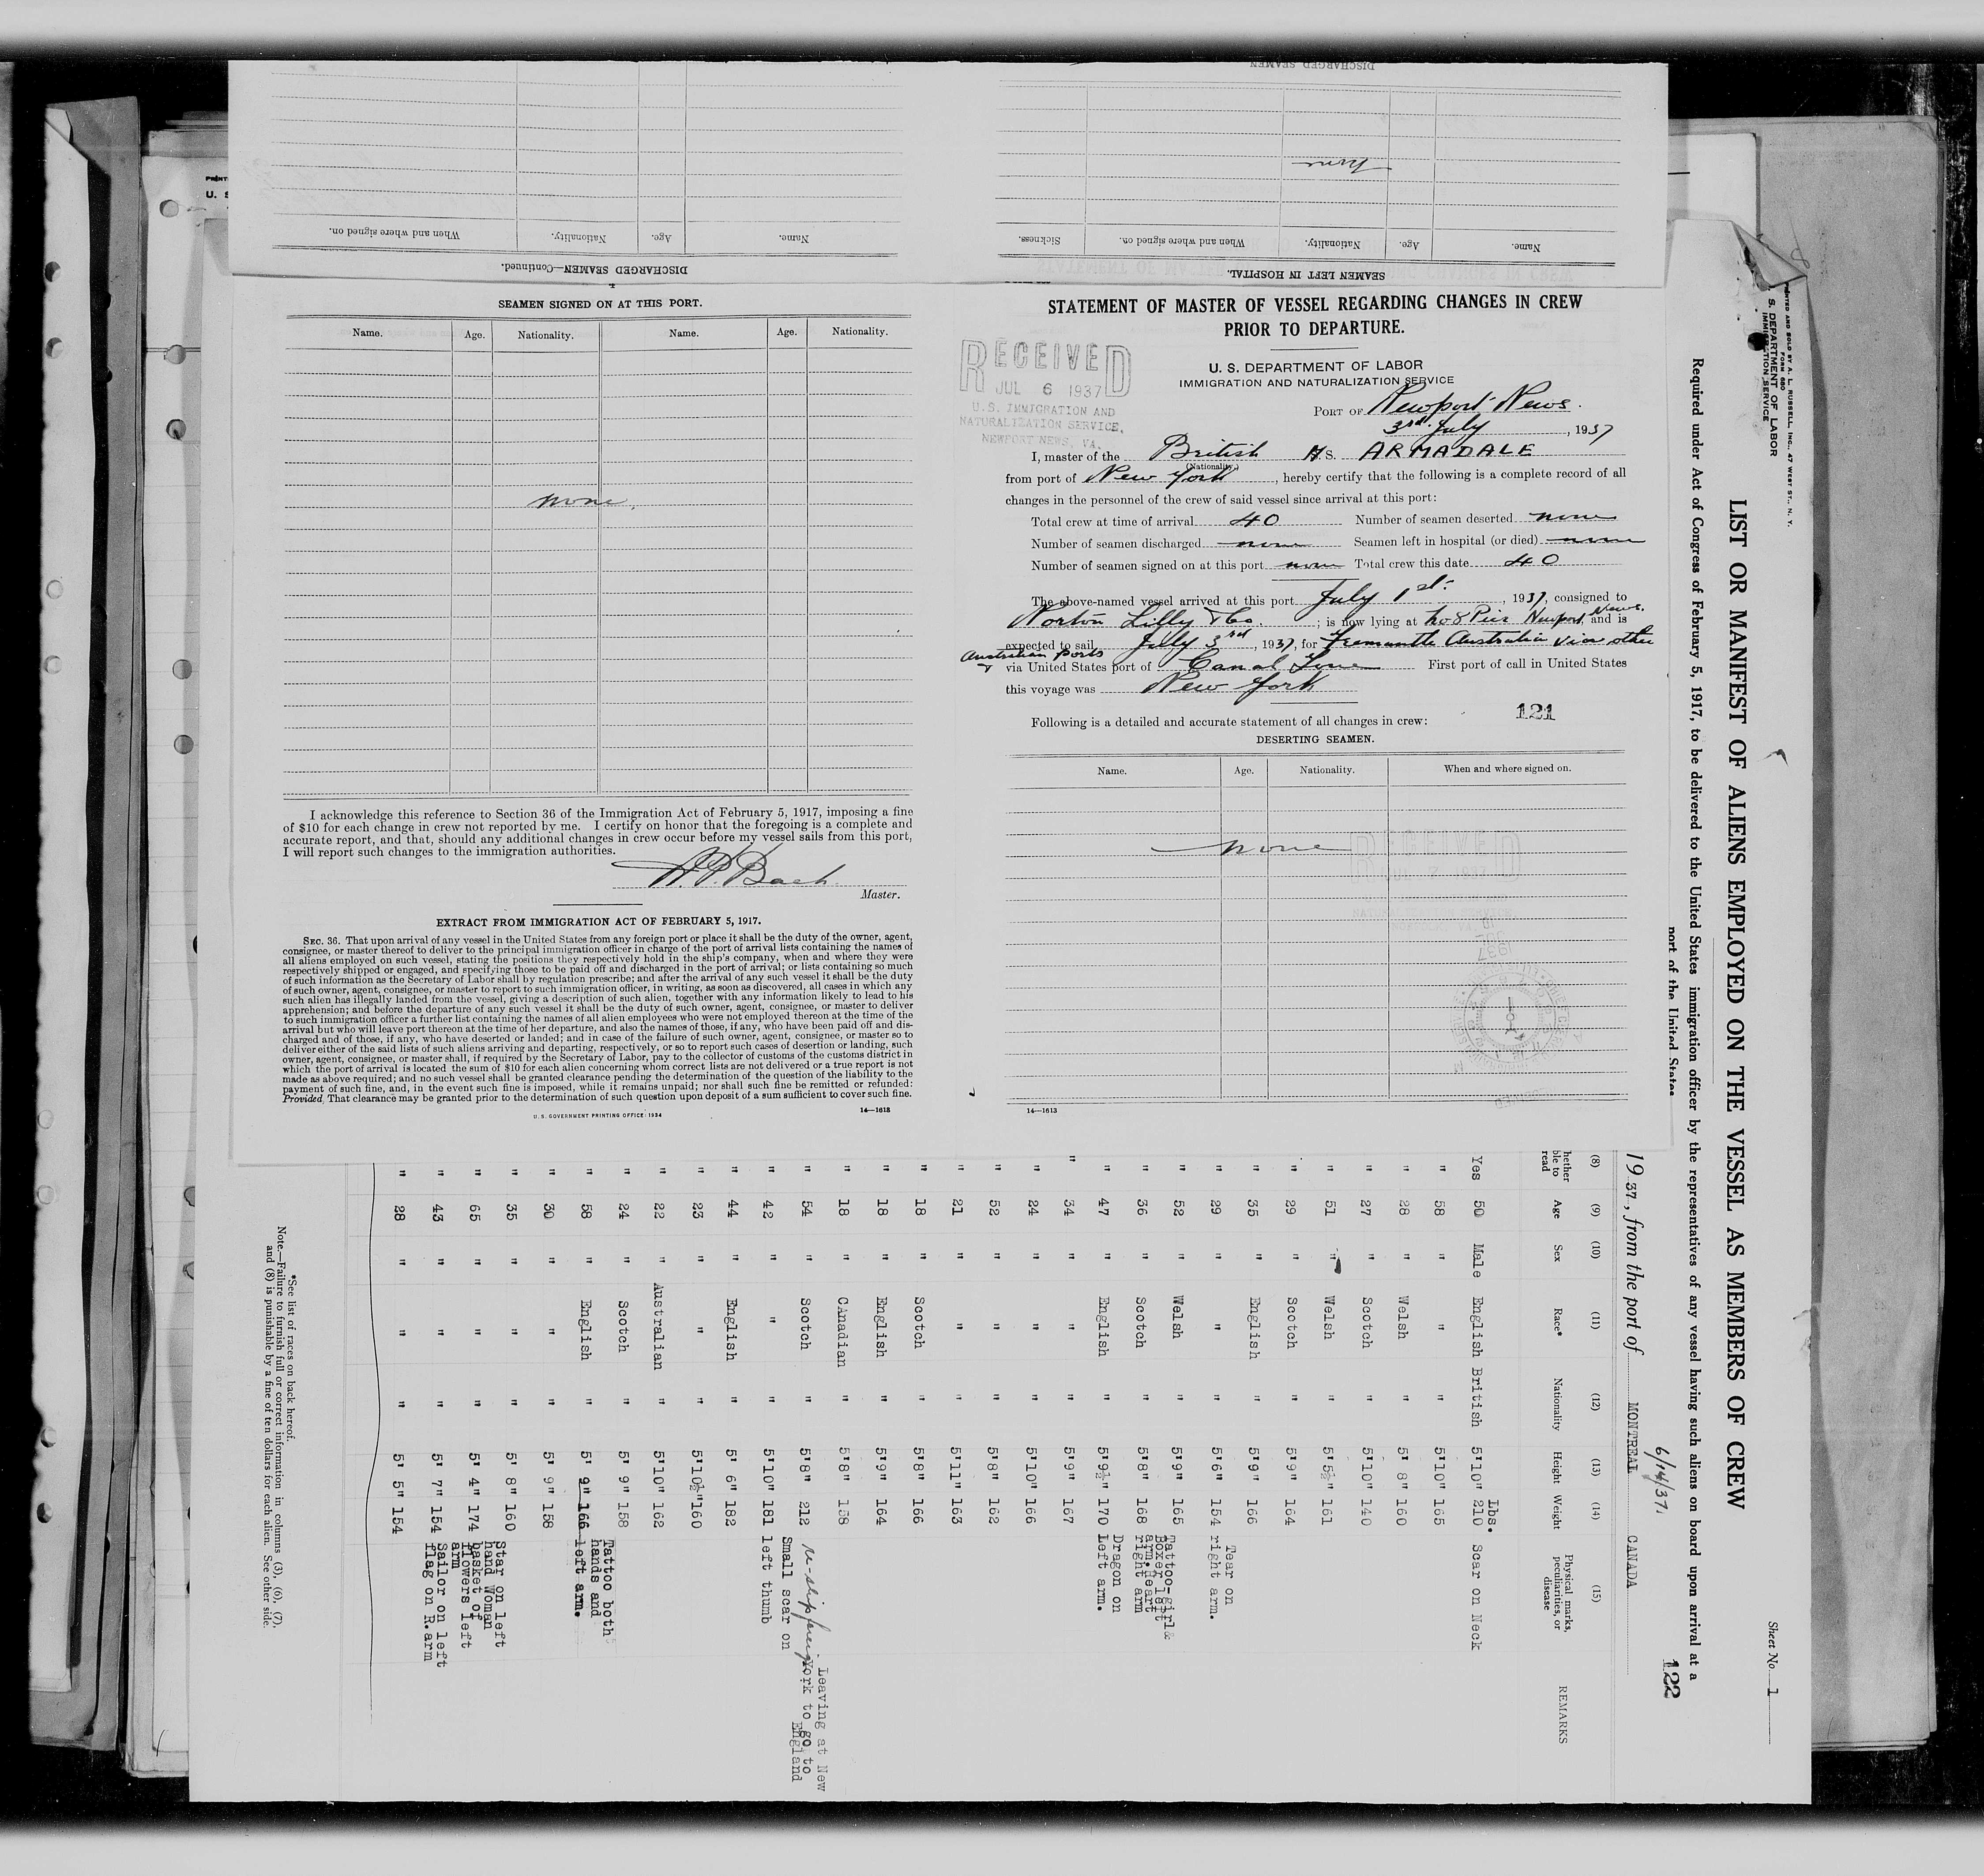 DISCHARGED SEAMEN
none
Name. Age. Nationality. When and where signed on. Sickness.
SEAMEN LEFT IN HOSPITAL.
Name. Age. Nationality. When and where signed on.
DISCHARGED SEAMEN—Continued.
4
SEAMEN SIGNED ON AT THIS PORT.
Name. Age. Nationality. Name. Age. Nationality.
none
I acknowledge this reference to Section 36 of the Immigration Act of February 5, 1917, imposing a fine
of $10 for each change in crew not reported by me. I certify on honor that the foregoing is a complete and
accurate report, and that, should any additional changes in crew occur before my vessel sails from this port,
I will report such changes to the immigration authorities.
Bach
Master.
EXTRACT FROM IMMIGRATION ACT OF FEBRUARY 5, 1917.
SEC. 36. That upon arrival of any vessel in the United States from any foreign port or place it shall be the duty of the owner, agent,
consignee, or master thereof to deliver to the principal immigration officer in charge of the port of arrival lists containing the names of
all aliens employed on such vessel, stating the positions they respectively hold in the ship's company, when and where they were
respectively shipped or engaged, and specifying those to be paid off and discharged in the port of arrival; or lists containing so much
of such information as the Secretary of Labor shall by regulation prescribe; and after the arrival of any such vessel it shall be the duty
of such owner, agent, consignee, or master to report to such immigration officer, in writing, as soon as discovered, all cases in which any
such alien has illegally landed from the vessel, giving a description of such alien, together with any information likely to lead to his
apprehension; and before the departure of any such vessel it shall be the duty of such owner, agent, consignee, or master to deliver
to such immigration officer a further list containing the names of all alien employees who were not employed thereon at the time of the
arrival but who will leave port thereon at the time of her departure, and also the names of those, if any, who have been paid off and dis-
charged and of those, if any, who have deserted or landed; and in case of the failure of such owner, agent, consignee, or master so to
deliver either of the said lists of such aliens arriving and departing, respectively, or so to report such cases of desertion or landing, such
owner, agent, consignee, or master shall, if required by the Secretary of Labor, pay to the collector of customs of the customs district in
which the port of arrival is located the sum of $10 for each alien concerning whom correct lists are not delivered or a true report is not
made as above required; and no such vessel shall be granted clearance pending the determination of the question of the liability to the
payment of such fine, and, in the event such fine is imposed, while it remains unpaid; nor shall such fine be remitted or refunded:
Provided, That clearance may be granted prior to the determination of such question upon deposit of a sum sufficient to cover such fine.
U. S. GOVERNMENT PRINTING OFFICE: 1934 14—1613
STATEMENT OF MASTER OF VESSEL REGARDING CHANGES IN CREW
PRIOR TO DEPARTURE.
RECEIVED
JUL 6 1937
U.S. IMMIGRATION AND
NATURALIZATION SERVICE,
NEWPORT NEWS, VA.
U. S. DEPARTMENT OF LABOR
IMMIGRATION AND NATURALIZATION SERVICE
PORT OF Newport News.
3rd July, 1937
I, master of the British S. ARMADALE
(Nationality)
from port of New York, hereby certify that the following is a complete record of all
changes in the personnel of the crew of said vessel since arrival at this port:
Total crew at time of arrival 40 Number of seamen deserted none
Number of seamen discharged none Seamen left in hospital (or died) none
Number of seamen signed on at this port none Total crew this date 40
The above-named vessel arrived at this port July 1st., 1937, consigned to
Norton Lilly & Co.; is now lying at No 8 Pier Newport News, and is
expected to sail July 3rd, 1937, for Fremantle Australia via other
Australian Ports
via United States port of Canal Zone First port of call in United States
this voyage was New York
121
Following is a detailed and accurate statement of all changes in crew:
DESERTING SEAMEN.
Name. Age. Nationality. When and where signed on.
none
RECEIVED
1937
14—1613
PRINTED AND SOLD BY A. L. RUSSELL, INC., 47 WEST ST., N. Y.
FORM 680
U. S. DEPARTMENT OF LABOR
IMMIGRATION SERVICE
Sheet No. 1
LIST OR MANIFEST OF ALIENS EMPLOYED ON THE VESSEL AS MEMBERS OF CREW
Required under Act of Congress of February 5, 1917, to be delivered to the United States immigration officer by the representatives of any vessel having such aliens on board upon arrival at a
port of the United States
122
6/14/37.
1937, from the port of MONTREAL CANADA
(8) (9) (10) (11) (12) (13) (14) (15)
hether ble to read Age Sex Race* Nationality Height Weight Physical marks, peculiarities, or disease REMARKS
Lbs.
Yes 50 Male English British 5'10" 210 Scar on Neck
" 58 " " " 5'10" 165
" 28 " Welsh " 5' 8" 160
" 27 " Scotch " 5'10" 140
" 51 " Welsh " 5'5½" 161
" 29 " Scotch " 5'9" 164
" 35 " English " 5'9" 166
" 29 " " " 5'6" 154 Tear on right arm.
" 52 " Welsh " 5'9" 165 Tattoo-girl& Boxer left arm.Heart right arm
" 36 " Scotch " 5'8" 168
" 47 " English " 5'9½" 170 Dragon on Left arm.
" 34 " " " 5'9" 167
" 24 " " " 5'10" 166
" 52 " " " 5'8" 162
" 21 " " " 5'11" 163
" 18 " Scotch " 5'8" 166
" 18 " English " 5'9" 164
" 18 " CAnadian " 5'8" 138
" 54 " Scotch " 5'8" 212 Leaving at New York to go to England
" 42 " " " 5'10" 181 Small scar on left thumb
" 44 " English " 5' 6" 182
" 23 " " " 5'10½" 160
" 22 " Australian " 5'10" 162
" 24 " Scotch " 5' 9" 158
" 58 " English " 5' 9" 166 Tattoo both hands and left arm.
" 30 " " " 5' 9" 158
" 35 " " " 5' 8" 160
" 65 " " " 5' 4" 174 Star on left hand Woman basket of flowers left arm
" 43 " " " 5' 7" 154 Sailor on left flag on R.arm
" 28 " " " 5' 5" 154
*See list of races on back hereof.
Note.—Failure to furnish full or correct information in columns (3), (6), (7),
and (8) is punishable by a fine of ten dollars for each alien. See other side.